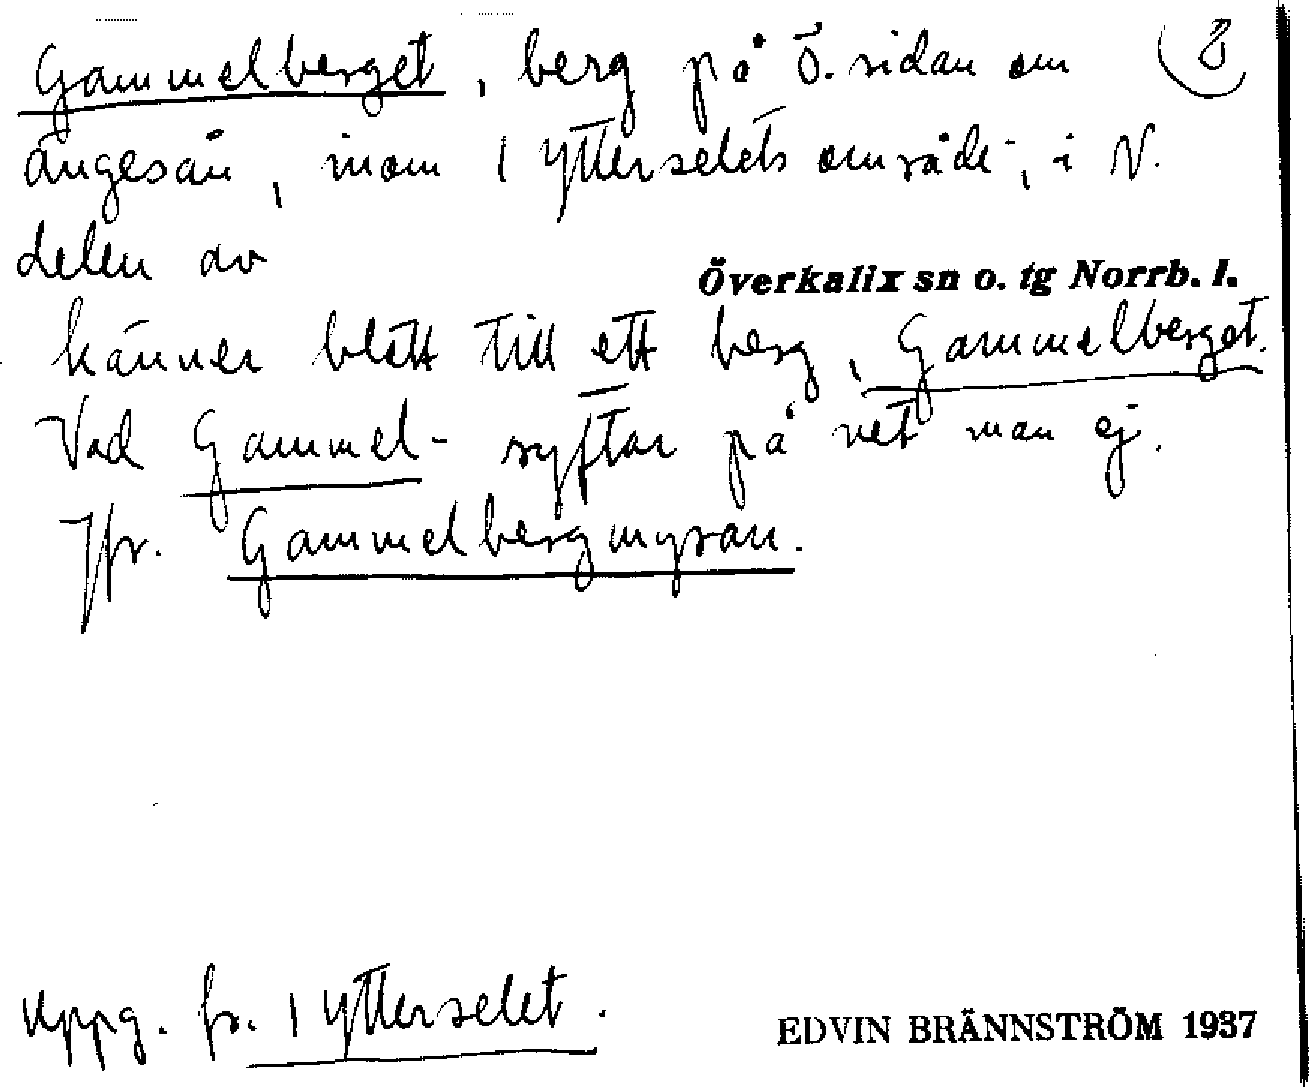 Gammelberget, berg på Ö. sidan om 8
Ängesån, inom 1 Ytterselets område, i N.
delen av
Överkalix sn o. tg Norrb. l.
känner blott till ett berg, Gammelberget.
Vad Gammel- syftar på vet man ej.
Jfr. Gammelbergmyran.
Uppg. fr. 1 Ytterselet.
EDVIN BRÄNNSTRÖM 1937